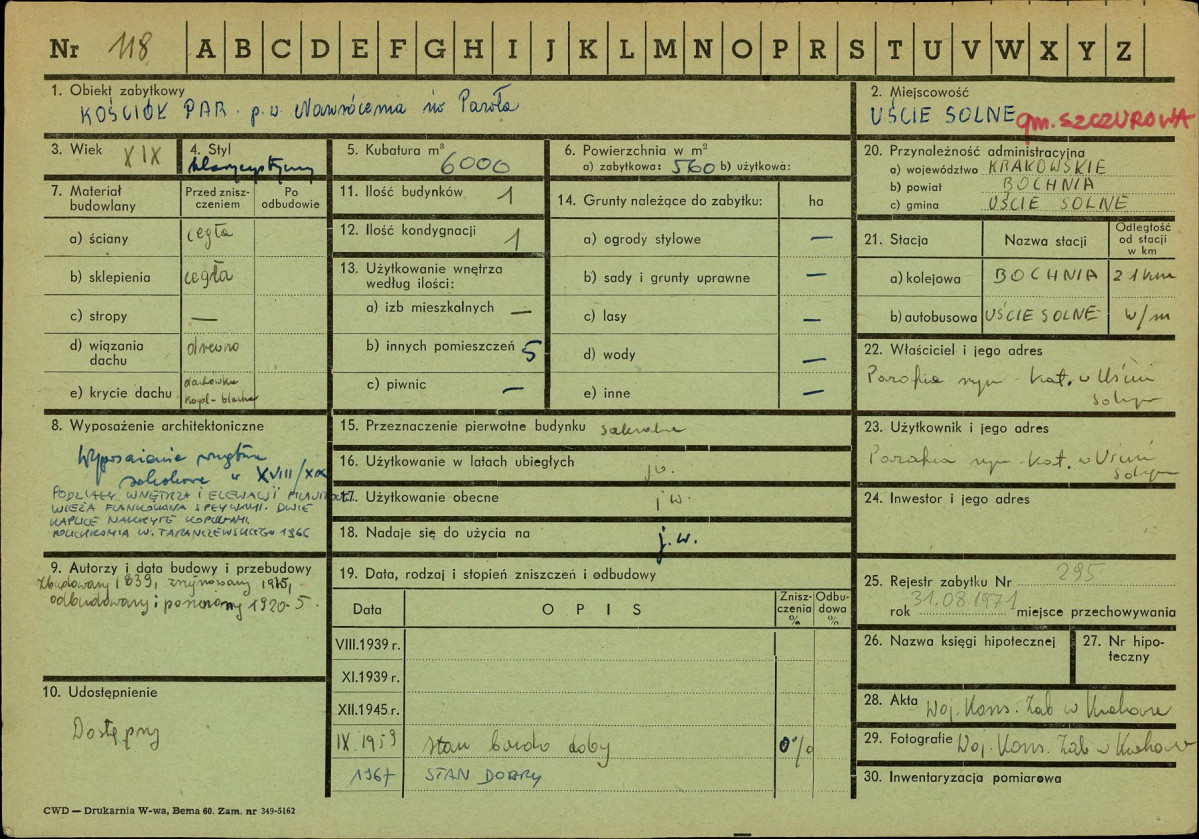 Nr 118 A B C D E F G H I J K L M N O P R S T U V W X Y Z
1. Obiekt zabytkowy
KOŚCIÓŁ PAR. p.w. Nawrócenia św Pawła
2. Miejscowość
UŚCIE SOLNE gm. SZCZUROWA
3. Wiek XIX
4. Styl
klasycystyczny
5. Kubatura m³
6000
6. Powierzchnia w m²
a) zabytkowa: 560 b) użytkowa:
20. Przynależność administracyjna
a) województwo KRAKOWSKIE
b) powiat BOCHNIA
c) gmina UŚCIE SOLNE
7. Materiał budowlany
Przed zniszczeniem
Po odbudowie
a) ściany cegła
b) sklepienia cegła
c) stropy —
d) wiązania dachu drewno
e) krycie dachu dachówka
kopł - blacha
11. Ilość budynków 1
12. Ilość kondygnacji 1
13. Użytkowanie wnętrza
według ilości:
a) izb mieszkalnych —
b) innych pomieszczeń 5
c) piwnic —
14. Grunty należące do zabytku: ha
a) ogrody stylowe —
b) sady i grunty uprawne —
c) lasy —
d) wody —
e) inne —
21. Stacja
Nazwa stacji
Odległość od stacji w km
a) kolejowa BOCHNIA 21 km
b) autobusowa UŚCIE SOLNE w/m
22. Właściciel i jego adres
Parafia rzym - kat. w Uściu
Solnym
8. Wyposażenie architektoniczne
Wyposażenie wnętrza
XVIII/XIX
PODZIAŁY WNĘTRZA I ELEWACJI
WIEŻA FLANKOWANA SPŁYWAMI. DWIE
KAPLICE NAKRYTE KOPUŁAMI.
POLICHROMIA W. TARANCZEWSKIEGO 1966
15. Przeznaczenie pierwotne budynku sakralne
16. Użytkowanie w latach ubiegłych jw.
17. Użytkowanie obecne jw.
18. Nadaje się do użycia na j.w.
23. Użytkownik i jego adres
Parafia rzym - kat. w Uściu
Solnym
24. Inwestor i jego adres
9. Autorzy i data budowy i przebudowy
Zbudowany 1839, zrujnowany 1915,
odbudowany i 1920-5.
19. Data, rodzaj i stopień zniszczeń i odbudowy
Data
OPIS
Zniszczenia %
Odbudowa %
VIII.1939 r.
XI.1939 r.
XII.1945 r.
IX.1959 stan bardzo dobry 0%
1967 STAN DOBRY
25. Rejestr zabytku Nr 295
rok 31.08.1971 miejsce przechowywania
26. Nazwa księgi hipotecznej
27. Nr hipoteczny
10. Udostępnienie
Dostępny
28. Akta Woj. Kons. Zab w Krakowie
29. Fotografie Woj. Kons. Zab w Krakowie
30. Inwentaryzacja pomiarowa
CWD — Drukarnia W-wa, Bema 60. Zam. nr 349-5162